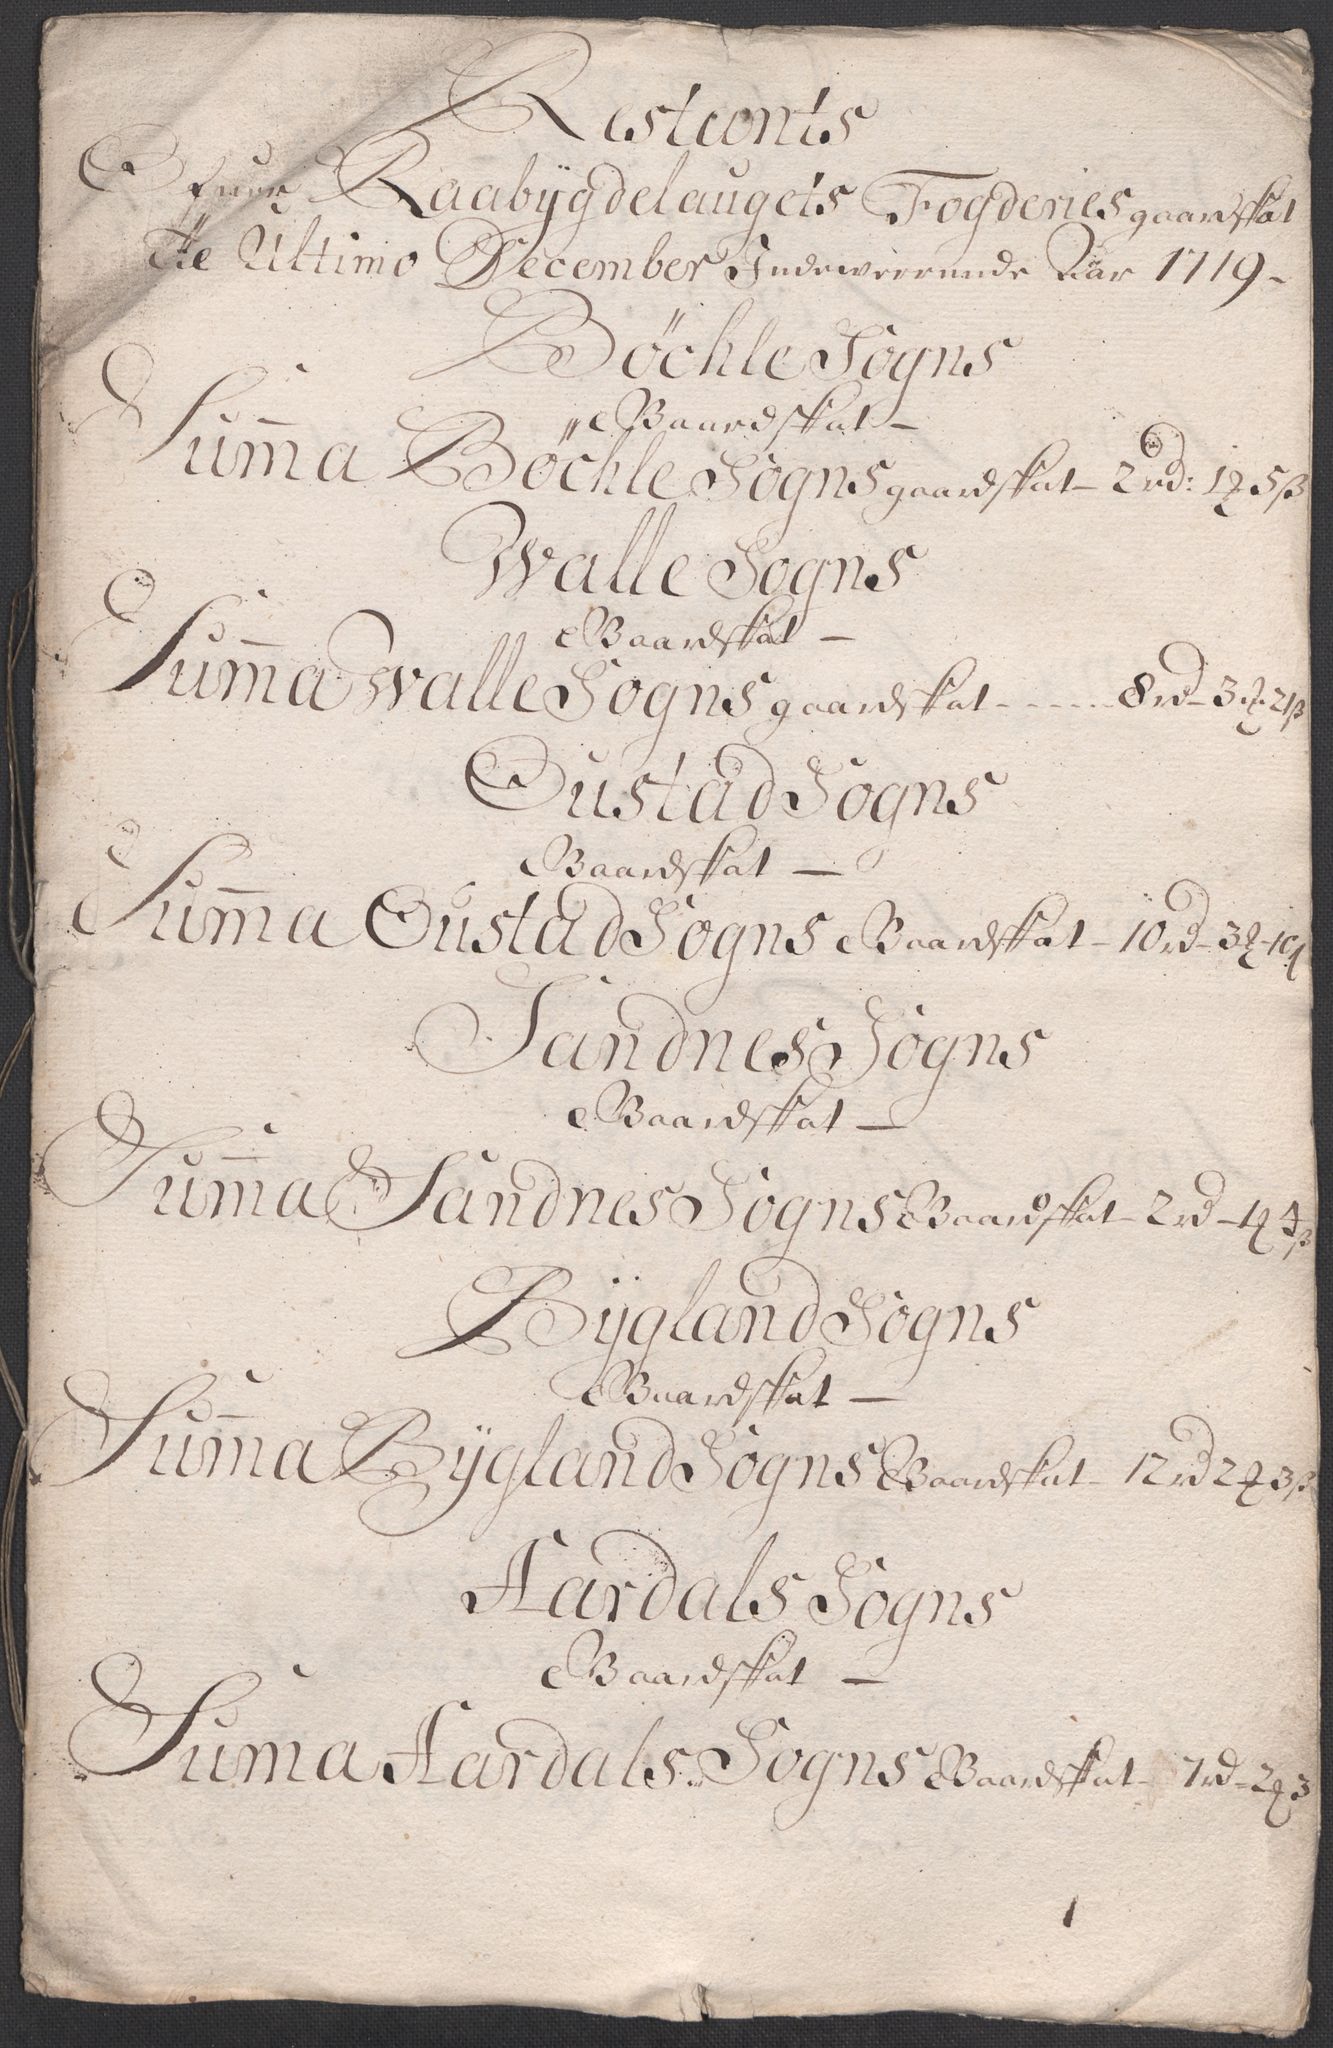 Restconts
Ofuer Raabÿgdelaugets Fogderies gaardskat
til Ultimo December Indeværende Aar 1719-
Böchle Sogns
Gaardskat -
Summa Böchle Sogns gaardskat - 2 rd: 1 ꝗ 5 ß
Walle Sogns
Gaardskat -
Summa Walle Sogns gaardskat - - - - - 8 rd - 3 ꝗ 21 ß
Oustad Sogns
Gaardskat -
Summa Oustad Sogns Gaardskat - 10 rd - 3 ꝗ -
Sandnes Sogns
Gaardskat -
Summa Sandnes Sogns Gaardskat - 2 rd - 1 ꝗ 4 ß
Bÿgland Sogns
Gaardskat -
Summa Bÿgland Sogns Gaardskat - 12 rd 2 ꝗ 3 ß
Aardals Sogns
Gaardskat -
Suma Aardals Sogns Gaardskat - 7 rd - 2 ꝗ 3
1